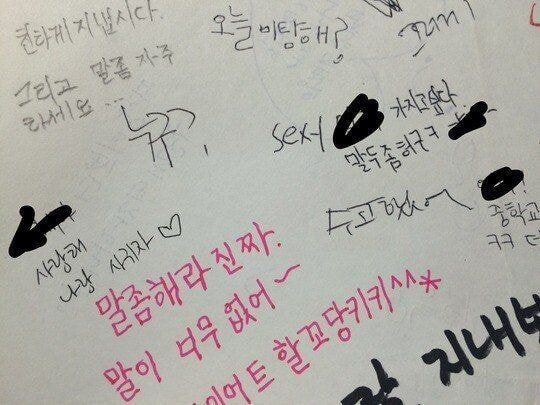 친하게지냅시다.
그리고 말좀 자주
하세요...
오늘 미탕해?
뉴규?,
sex서 가지고싶다
말두좀하구ㅋ
수고했어~
중학교
ㅋㅋ
사랑해
나랑 사귀자♡
말좀해라 진짜.
말이 너무없어~
할꼬당키키^^*
지내